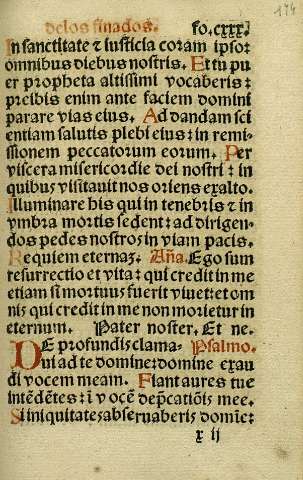 194
delos finados. fo.cxxx.
In sanctitate ⁊ iusticia coram ipso:
omnibus diebus nostris. Et tu pu
er propheta altissimi vocaberis:
preibis enim ante faciem domini
parare vias eius. Ad dandam sci
entiam salutis plebi eius: in remi-
ssionem peccatorum eorum. Per
viscera misericordie dei nostri: in
quibus visitauit nos oriens ex alto.
Illuminare his qui in tenebris ⁊ in
vmbra mortis sedent: ad dirigen-
dos pedes nostros in viam pacis.
Requiem eternaz. Aña. Ego sum
resurrectio et vita: qui credit in me
etiam si mortuus fuerit viuet: et om
nis qui credit in me non morietur in
eternum. Pater noster. Et ne.
De profundis clama- Psalmo.
ui ad te domine: domine exau
di vocem meam. Fiant aures tue
intēdētes: ī vocē dep̄catiōis mee.
Si iniquitates abseruaberis domīe:
x ij